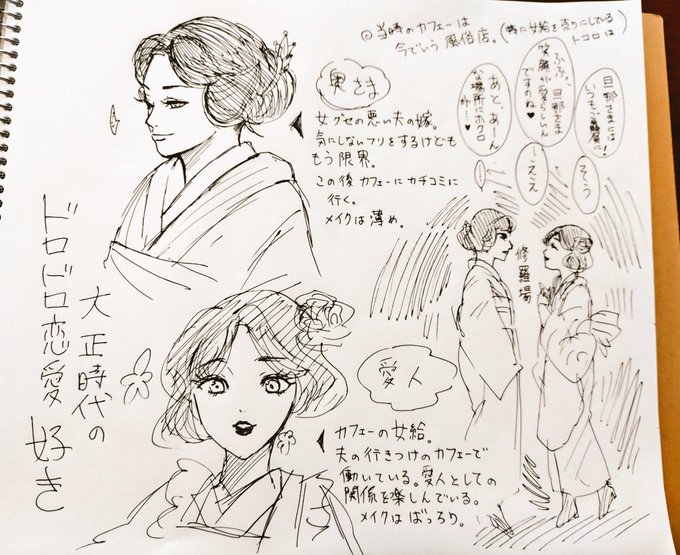 ◎当時のカフェーは
今でいう風俗店。(特に女給を売りにしている
トコロは
奥さま
女グセの悪い夫の嫁。
気にしないフリをするけども
もう限界。
この後カフェーにカチコミに
行く。
メイクは薄め。
旦那さまには
いつもご贔屓に!
そう
ふふ、旦那さま
笑顔が愛らしいん
ですのね♥
…ええ
あと、あーん
な場所にホクロ
が…♥
……
修羅場
大正時代の
ドロドロ恋愛好き
愛人
カフェーの女給。
夫の行きつけのカフェーで
働いている。愛人としての
関係を楽しんでいる。
メイクはばっちり。